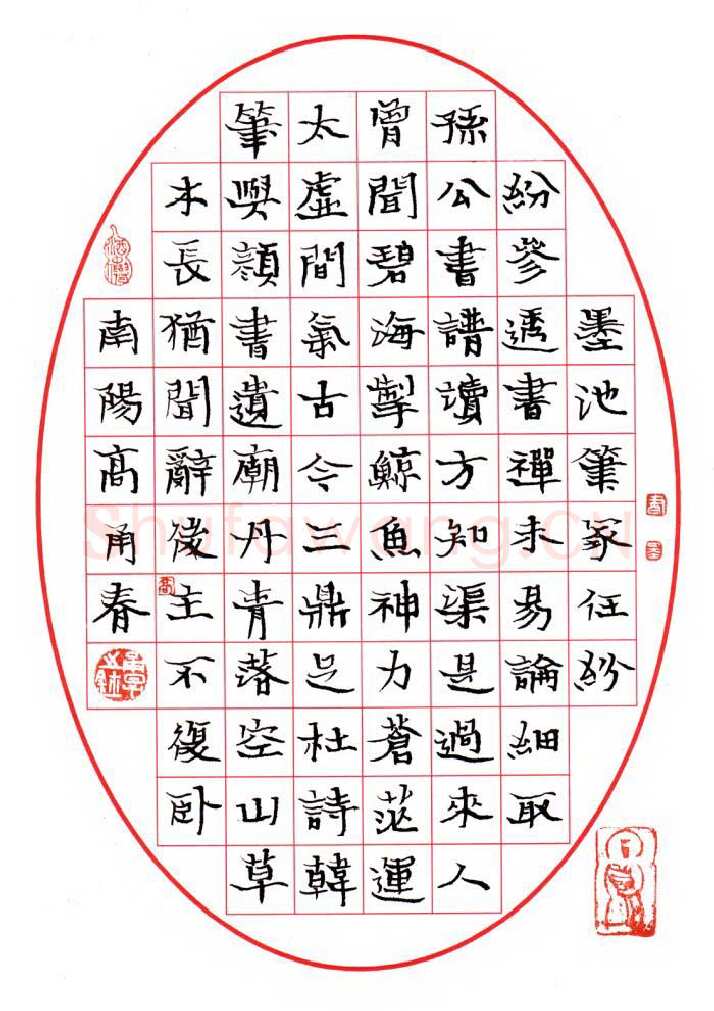 墨池筆冢任紛
紛參透書禪未易論細取
孫公書譜讀方知渠是過來人
曾聞碧海掣鯨魚神力蒼茫運
太虛間氣古今三鼎足杜詩韓
筆與顏書遺廟丹青落空山草
木長猶聞辭後主不復卧
南陽高甬春
Shufawang.CN